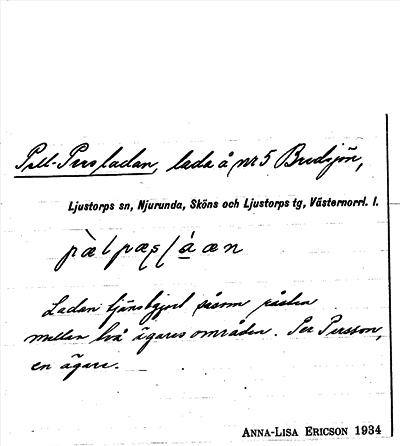 Pell-Persladan, lada å nr 5 Bredsjön,
Ljustorps sn, Njurunda, Sköns och Ljustorps tg, Västernorrl. l.
Ladan tjänstgjort såsom råsten
mellan två ägares områden. Per Persson,
en ägare.
ANNA-LISA ERICSON 1934